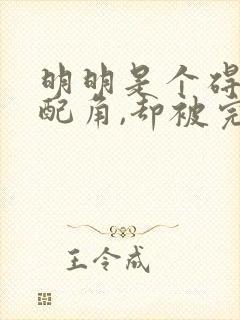 明明是个碍
配角,却被完
王令成